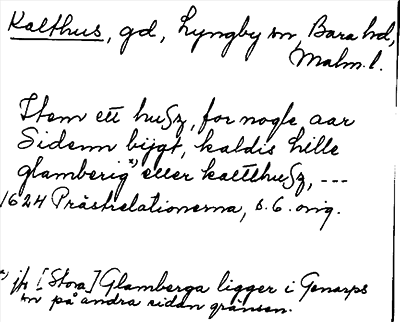 Kalthus, gd, Lyngby sn, Bara hd,
Malm. l.
Item ett huSz, for nogle aar
Sidenn bijgt, kaldis hille
glamberig x) eller kaltthuSz, ---
1624 Prästrelationerna, s. 6. orig.
x) jfr [Stora] Glamberga ligger i Genarps
sn på andra sidan gränsen.